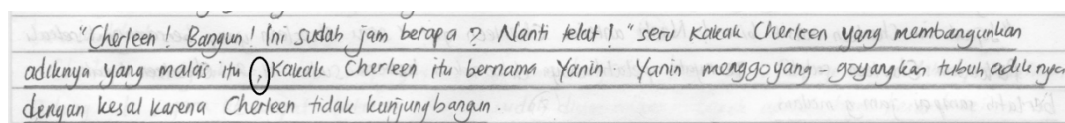 "Cherleen! Bangun! Ini sudah jam berapa? Nanti telat!" seru Kakak Cherleen yang membangunkan
adiknya yang malas itu, Kakak Cherleen itu bernama Yanin. Yanin menggoyang-goyangkan tubuh adiknya
dengan kesal karena Cherleen tidak kunjung bangun.